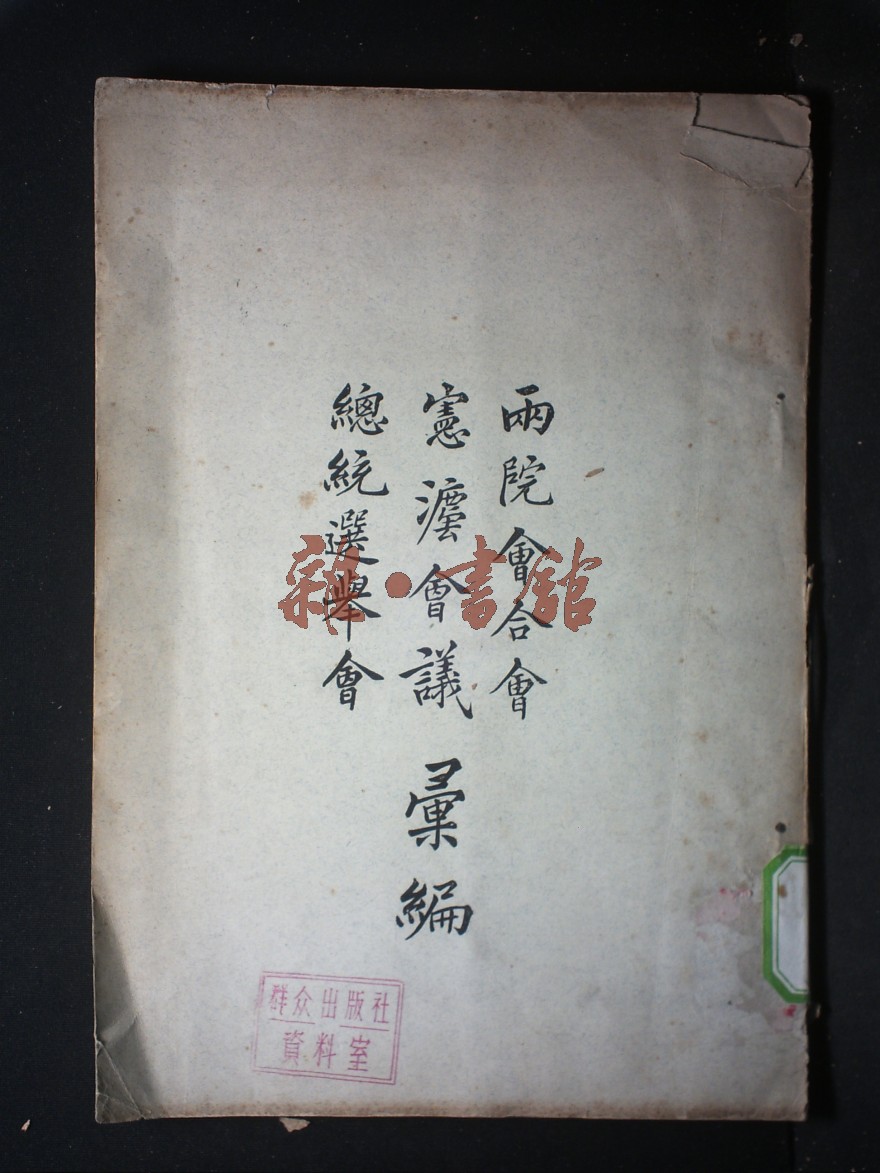 兩院會合會
憲灋會議
總統選舉會
彙編
雜·書館
群众出版社
資料室